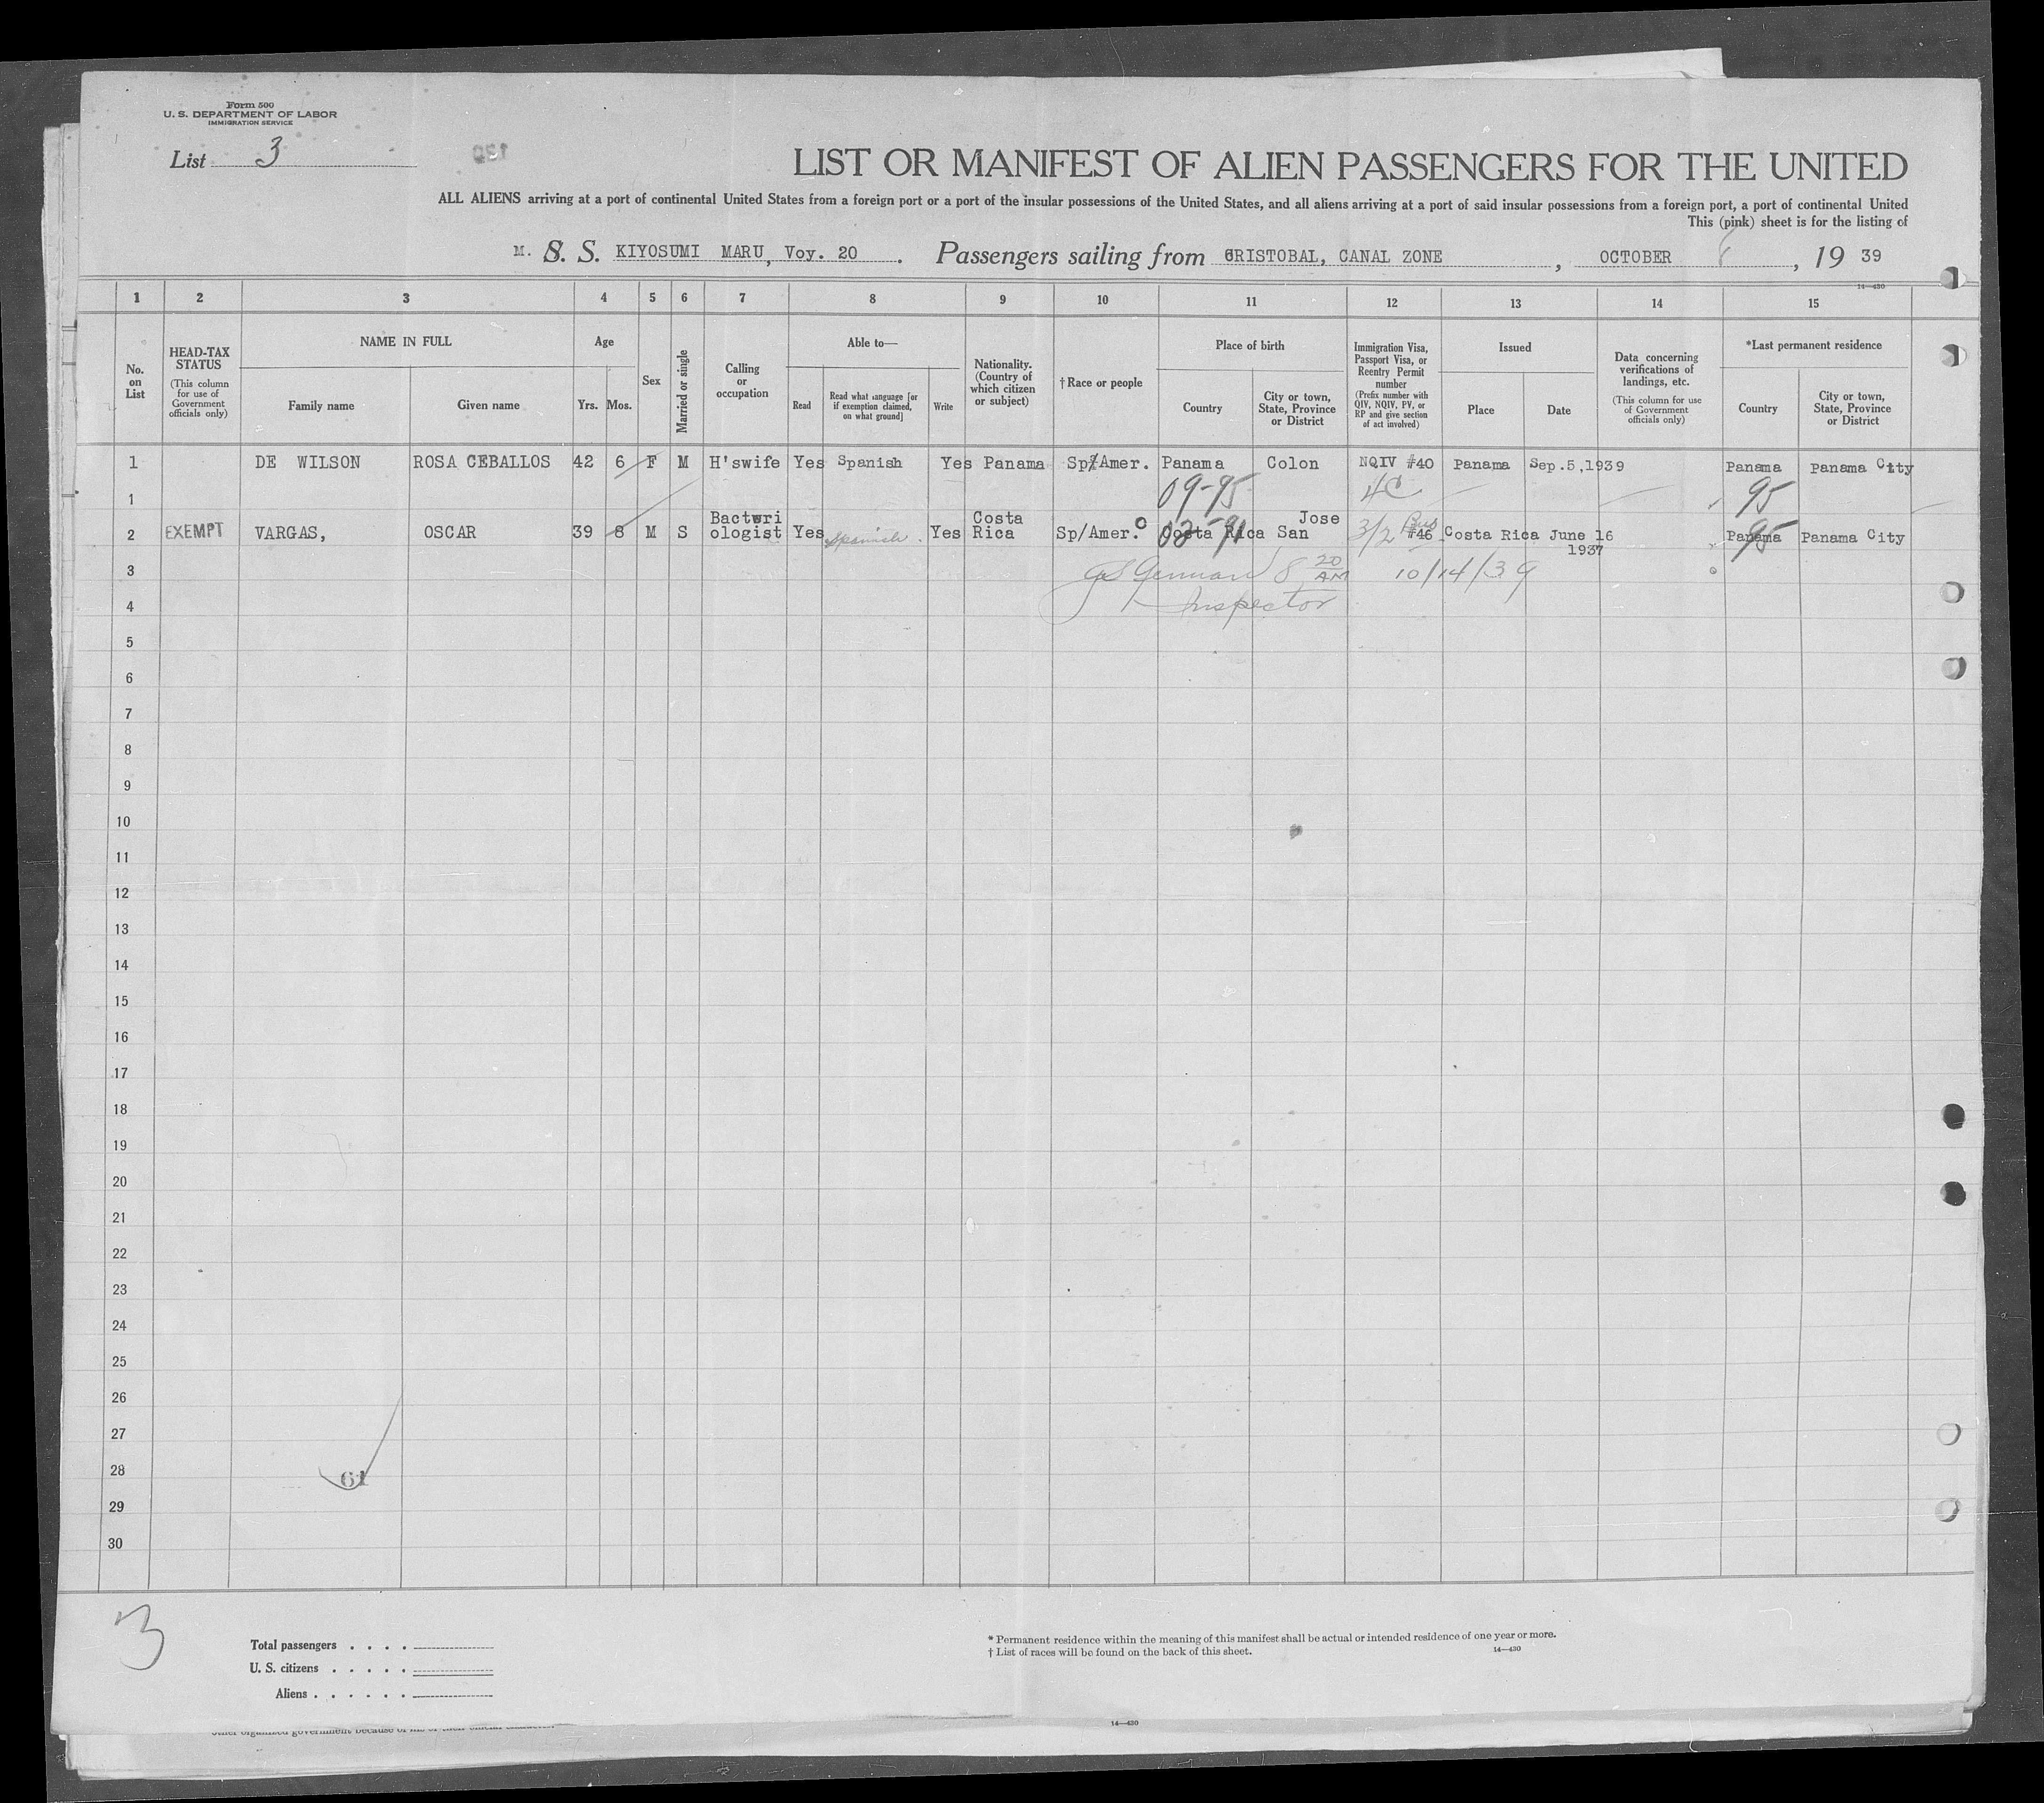 Form 500
U. S. DEPARTMENT OF LABOR
IMMIGRATION SERVICE
List 3
LIST OR MANIFEST OF ALIEN PASSENGERS FOR THE UNITED
ALL ALIENS arriving at a port of continental United States from a foreign port or a port of the insular possessions of the United States, and all aliens arriving at a port of said insular possessions from a foreign port, a port of continental United
This (pink) sheet is for the listing of
M. S. S. KIYOSUMI MARU, Voy. 20. Passengers sailing from CRISTOBAL, CANAL ZONE, OCTOBER 6, 19 39
14—430
1 2 3 4 5 6 7 8 9 10 11 12 13 14 15
No. on List
HEAD-TAX STATUS
(This column for use of Government officials only)
NAME IN FULL
Family name Given name
Age
Yrs. Mos.
Sex
Married or single
Calling or occupation
Able to—
Read
Read what language [or if exemption claimed, on what ground]
Write
Nationality. (Country of which citizen or subject)
† Race or people
Place of birth
Country
City or town, State, Province or District
Immigration Visa, Passport Visa, or Reentry Permit number
(Prefix number with QIV, NQIV, PV, or RP and give section of act involved)
Issued
Place Date
Data concerning verifications of landings, etc.
(This column for use of Government officials only)
*Last permanent residence
Country
City or town, State, Province or District
1 DE WILSON ROSA CEBALLOS 42 6 F M H'swife Yes Spanish Yes Panama Sp/Amer. Panama Colon NQIV #40 Panama Sep.5,1939 Panama Panama City
1 09-95 4C 95
Bactwri Costa Jose
2 EXEMPT VARGAS, OSCAR 39 8 M S ologist Yes Spanish. Yes Rica Sp/Amer. Costa Rica San 3/2 #46 Costa Rica June 16 Panama Panama City
02-91 1937 95
3 German 8 20 AM 10/14/39
4 Inspector
5
6
7
8
9
10
11
12
13
14
15
16
17
18
19
20
21
22
23
24
25
26
27
28 61
29
30
3
Total passengers
U. S. citizens
Aliens
* Permanent residence within the meaning of this manifest shall be actual or intended residence of one year or more.
† List of races will be found on the back of this sheet.
14—430
14—430